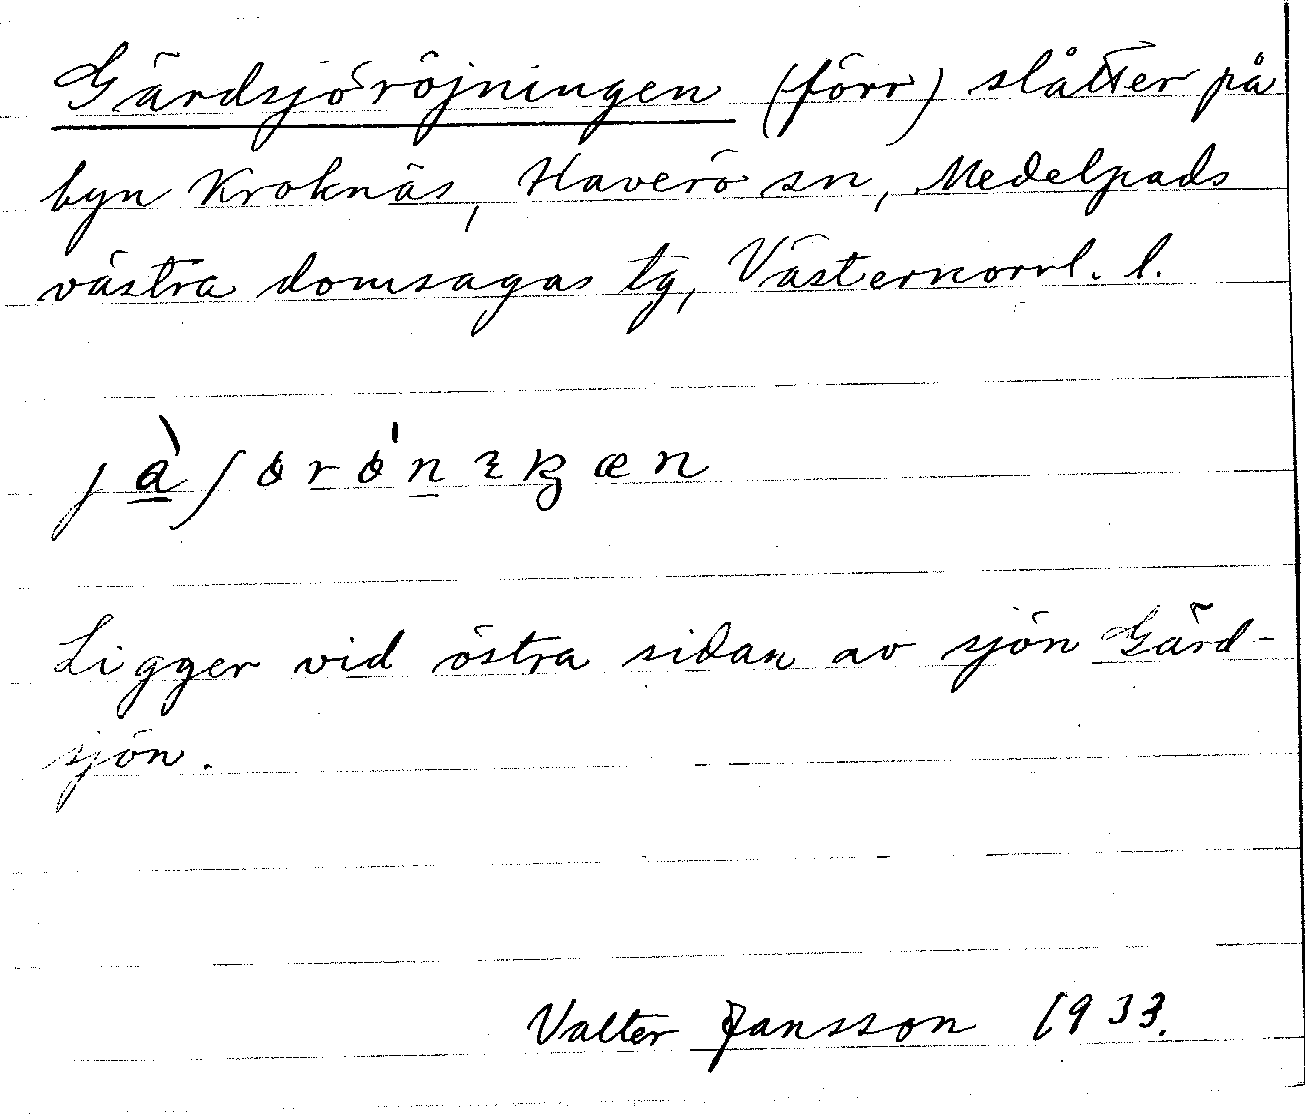 Gärdsjöröjningen (förr) slåtter på
byn Kroknäs, Haverö sn, Medelpads
västra domsagas tg, Västernorrl. l.
Ligger vid östra sidan av sjön Gärd-
sjön.
Valter Jansson 1933.